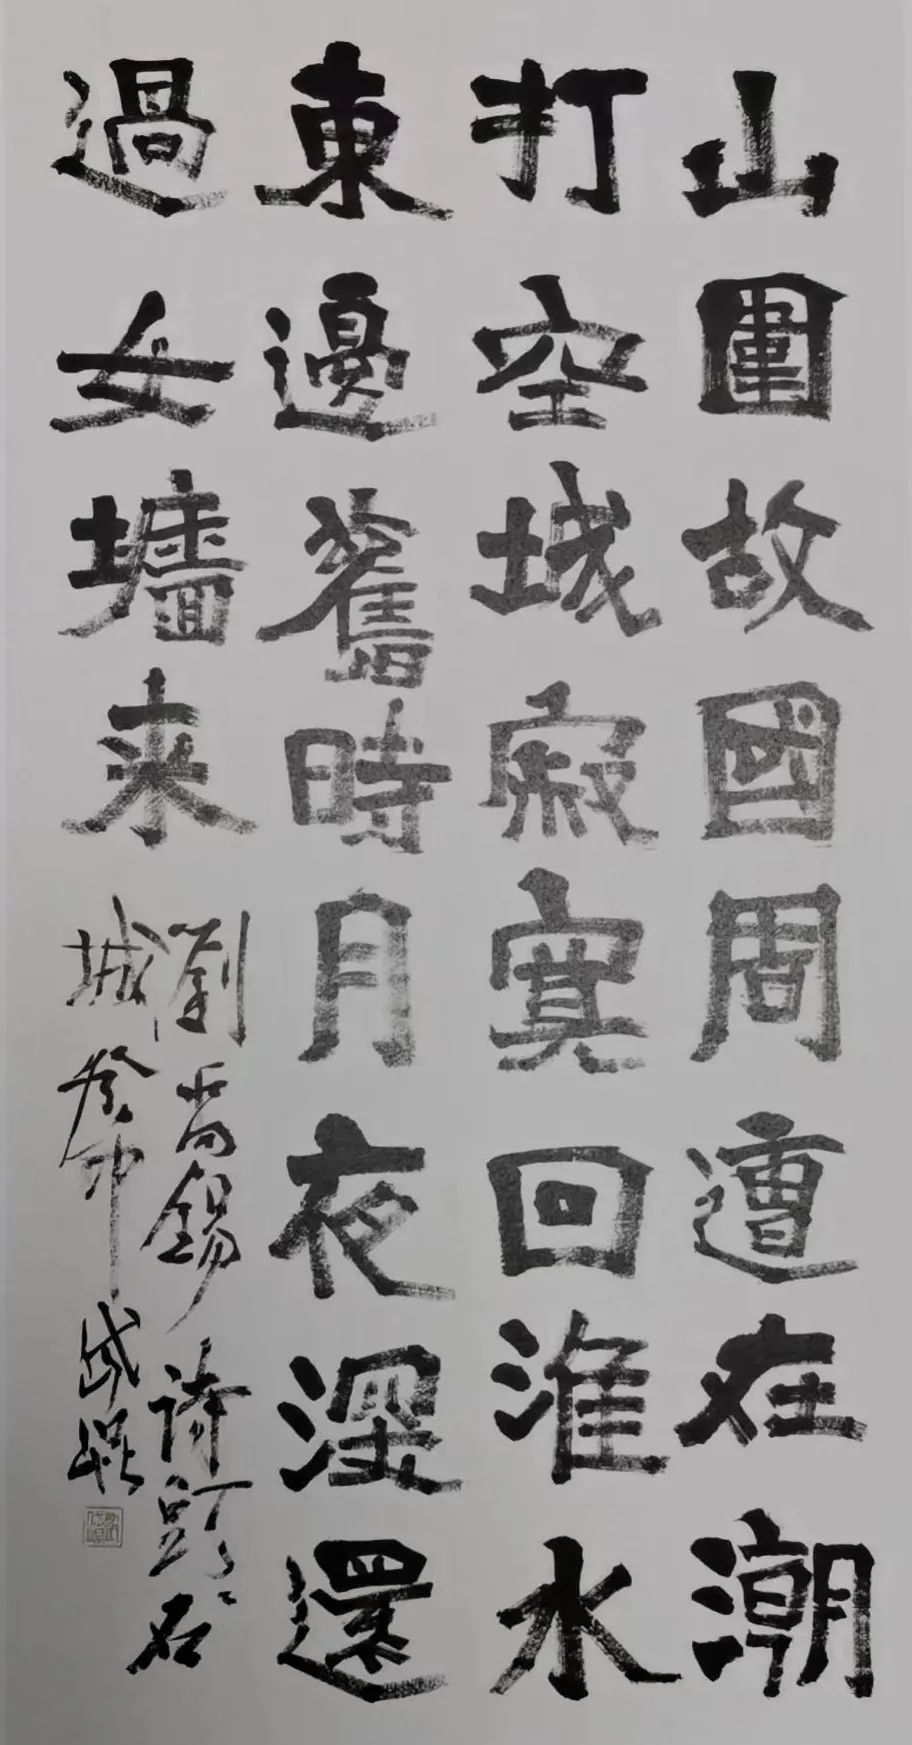 山圍故國周遭在潮
打空城寂寞回淮水
東邊舊時月夜深還
過女墻來
劉禹錫詩頭石
城癸卯岱